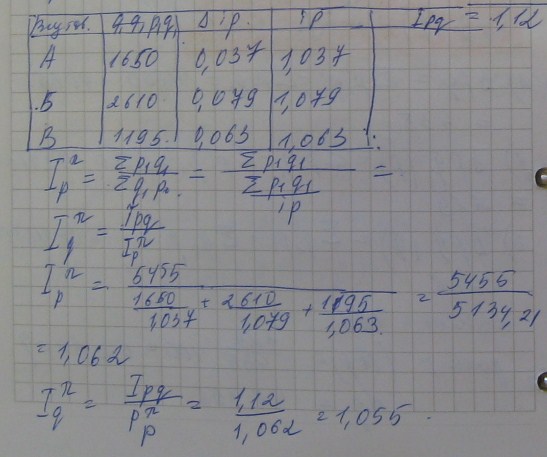 Вид тов. q₁p₁ Δip ip Ipq = 1,12
А 1650 0,037 1,037
Б 2610 0,079 1,079
В 1195 0,063 1,063
I_p^п = Σp₁q₁ / Σq₁p₀ = Σp₁q₁ / (Σp₁q₁ / ip) =
I_q^п = Ipq / I_p^п
I_p^п = 5455 / (1650/1,037 + 2610/1,079 + 1195/1,063) = 5455 / 5134,21
= 1,062
I_q^п = Ipq / p_p^п = 1,12 / 1,062 = 1,055.